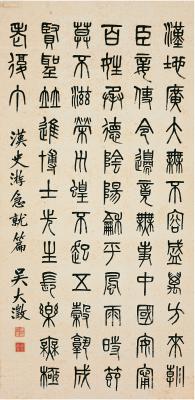 漢地廣大無不容盛萬方來朝
臣妾使令邊竟無事中國安寧
百姓承德陰陽龢平風雨時節
莫不滋榮災蝗不起五穀孰成
賢聖竝進博士先生長樂無極
老復丁
漢史游急就篇
吳大澂